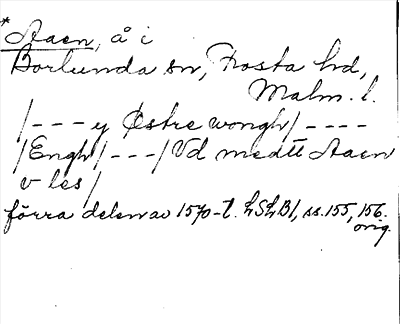 *Aaen, å i
Borlunda sn, Frosta hd,
Malm. l.
/--- y Østre wongh/----
/Engh/---/Vd medtt Aaen
v les/
förra delen av 1570-t. LSLB1, ss. 155, 156.
orig.